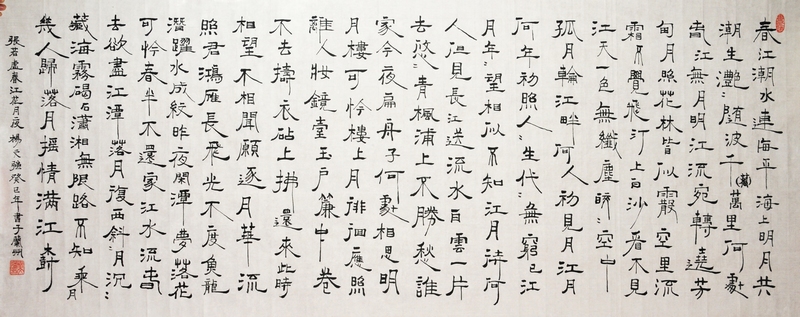 春江潮水連海平海上明月共
潮生灩〻隨波千(萬)萬里何處
春江無月明江流宛轉遶芳
甸月照花林皆似霰空里流
霜不覺飛汀上白沙看不見
江天一色無纖塵皎〻空中
孤月輪江畔何人初見月江月
何年初照人〻生代〻無窮已江
月年〻望相似不知江月待何
人但見長江送流水白雲一片
去悠〻青楓浦上不勝愁誰
家今夜扁舟子何處相思明
月樓可怜樓上月徘徊應照
離人妝鏡臺玉戶簾中卷
不去擣衣砧上拂還來此時
相望不相聞願逐月華流
照君鴻雁長飛光不度魚龍
潛躍水成紋昨夜閑潭夢落花
可怜春半不還家江水流春
去欲盡江潭落月復西斜〻月沉〻
藏海霧碣石瀟湘無限路不知乘月
幾人歸落月搖情滿江樹
張若虛春江花月夜 楊 強癸巳年書于蘭州